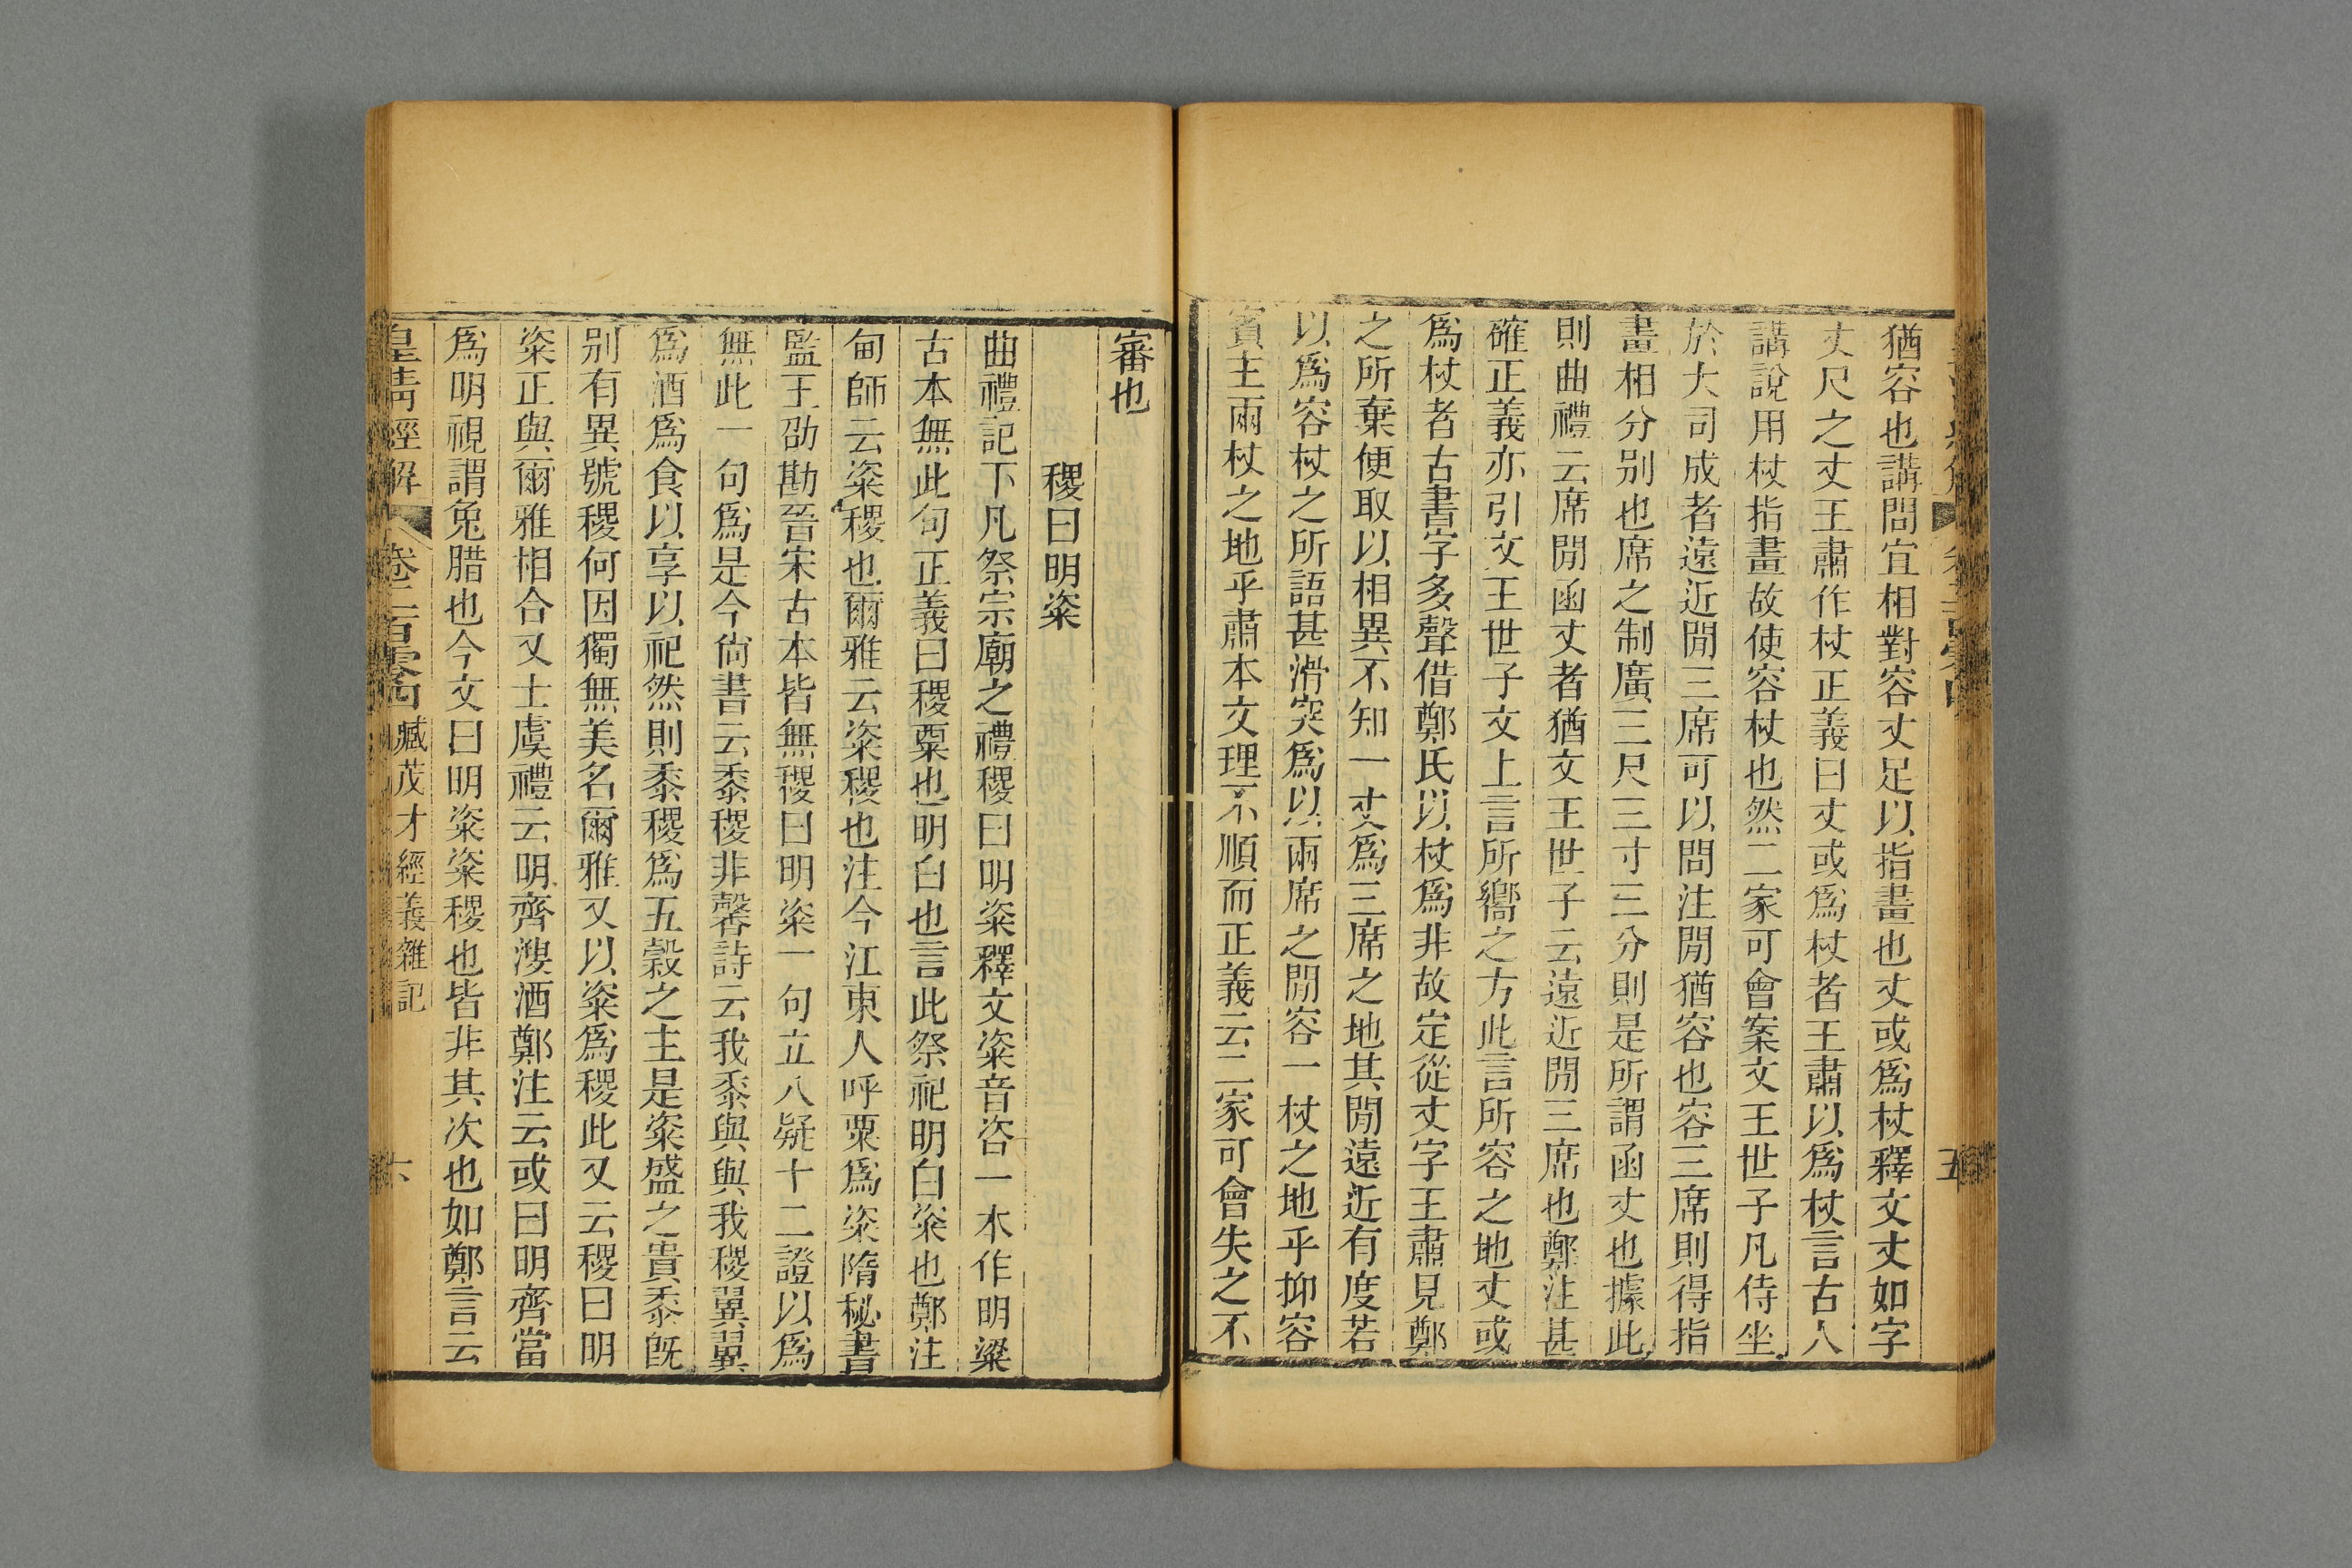 五
猶容也講問宜相對容丈足以指畫也丈或爲杖釋文丈如字
丈尺之丈王肅作杖正義曰丈或爲杖者王肅以爲杖言古人
講說用杖指畫故使容杖也然二家可會案文王世子凡侍坐
於大司成者遠近閒三席可以問注閒猶容也容三席則得指
畫相分别也席之制廣三尺三寸三分則是所謂函丈也據此
則曲禮云席閒函丈者猶文王世子云遠近閒三席也鄭注甚
確正義亦引文王世子文上言所嚮之方此言所容之地丈或
爲杖者古書字多聲借鄭氏以杖爲非故定從丈字王肅見鄭
之所棄便取以相異不知一丈爲三席之地其閒遠近有度若
以爲容杖之所語甚滑突爲以兩席之閒容一杖之地乎抑容
賓主兩杖之地乎肅本文理不順而正義云二家可會失之不
審也
稷曰明粢
曲禮記下凡祭宗廟之禮稷曰明粢釋文粢音咨一本作明粱
古本無此句正義曰稷粟也明白也言此祭祀明白粢也鄭注
甸師云粢稷也爾雅云粢稷也注今江東人呼粟爲粢隋秘書
監王劭勘晉宋古本皆無稷曰明粢一句立八疑十二證以爲
無此一句爲是今尙書云黍稷非馨詩云我黍與與我稷翼翼
爲酒爲食以享以祀然則黍稷爲五穀之主是粢盛之貴黍旣
别有異號稷何因獨無美名爾雅又以粢爲稷此又云稷曰明
粢正與爾雅相合又士虞禮云明齊溲酒鄭注云或曰明齊當
爲明視謂兔腊也今文曰明粢粢稷也皆非其次也如鄭言云
皇淸經解 卷二百零四 臧茂才經義雜記 六